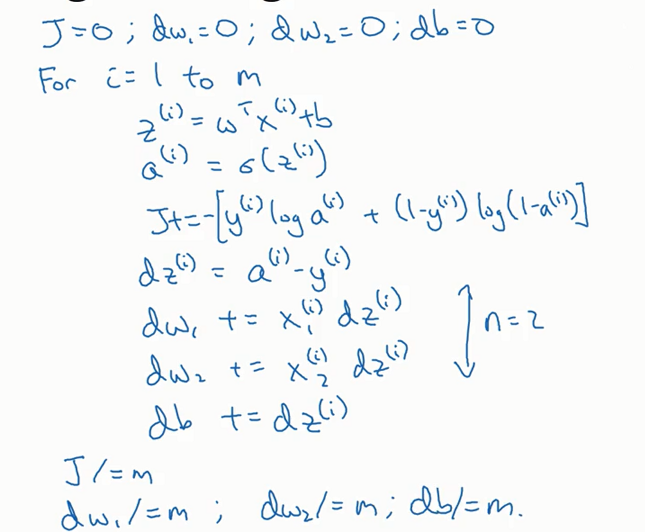 J=0 ; dw₁=0 ; dw₂=0 ; db=0
For i=1 to m
z⁽ⁱ⁾ = wᵀx⁽ⁱ⁾+b
a⁽ⁱ⁾ = σ(z⁽ⁱ⁾)
J+=-[y⁽ⁱ⁾ log a⁽ⁱ⁾ + (1-y⁽ⁱ⁾) log(1-a⁽ⁱ⁾)]
dz⁽ⁱ⁾ = a⁽ⁱ⁾-y⁽ⁱ⁾
dw₁ += x₁⁽ⁱ⁾ dz⁽ⁱ⁾
n=2
dw₂ += x₂⁽ⁱ⁾ dz⁽ⁱ⁾
db += dz⁽ⁱ⁾
J/=m
dw₁/=m ; dw₂/=m ; db/=m.